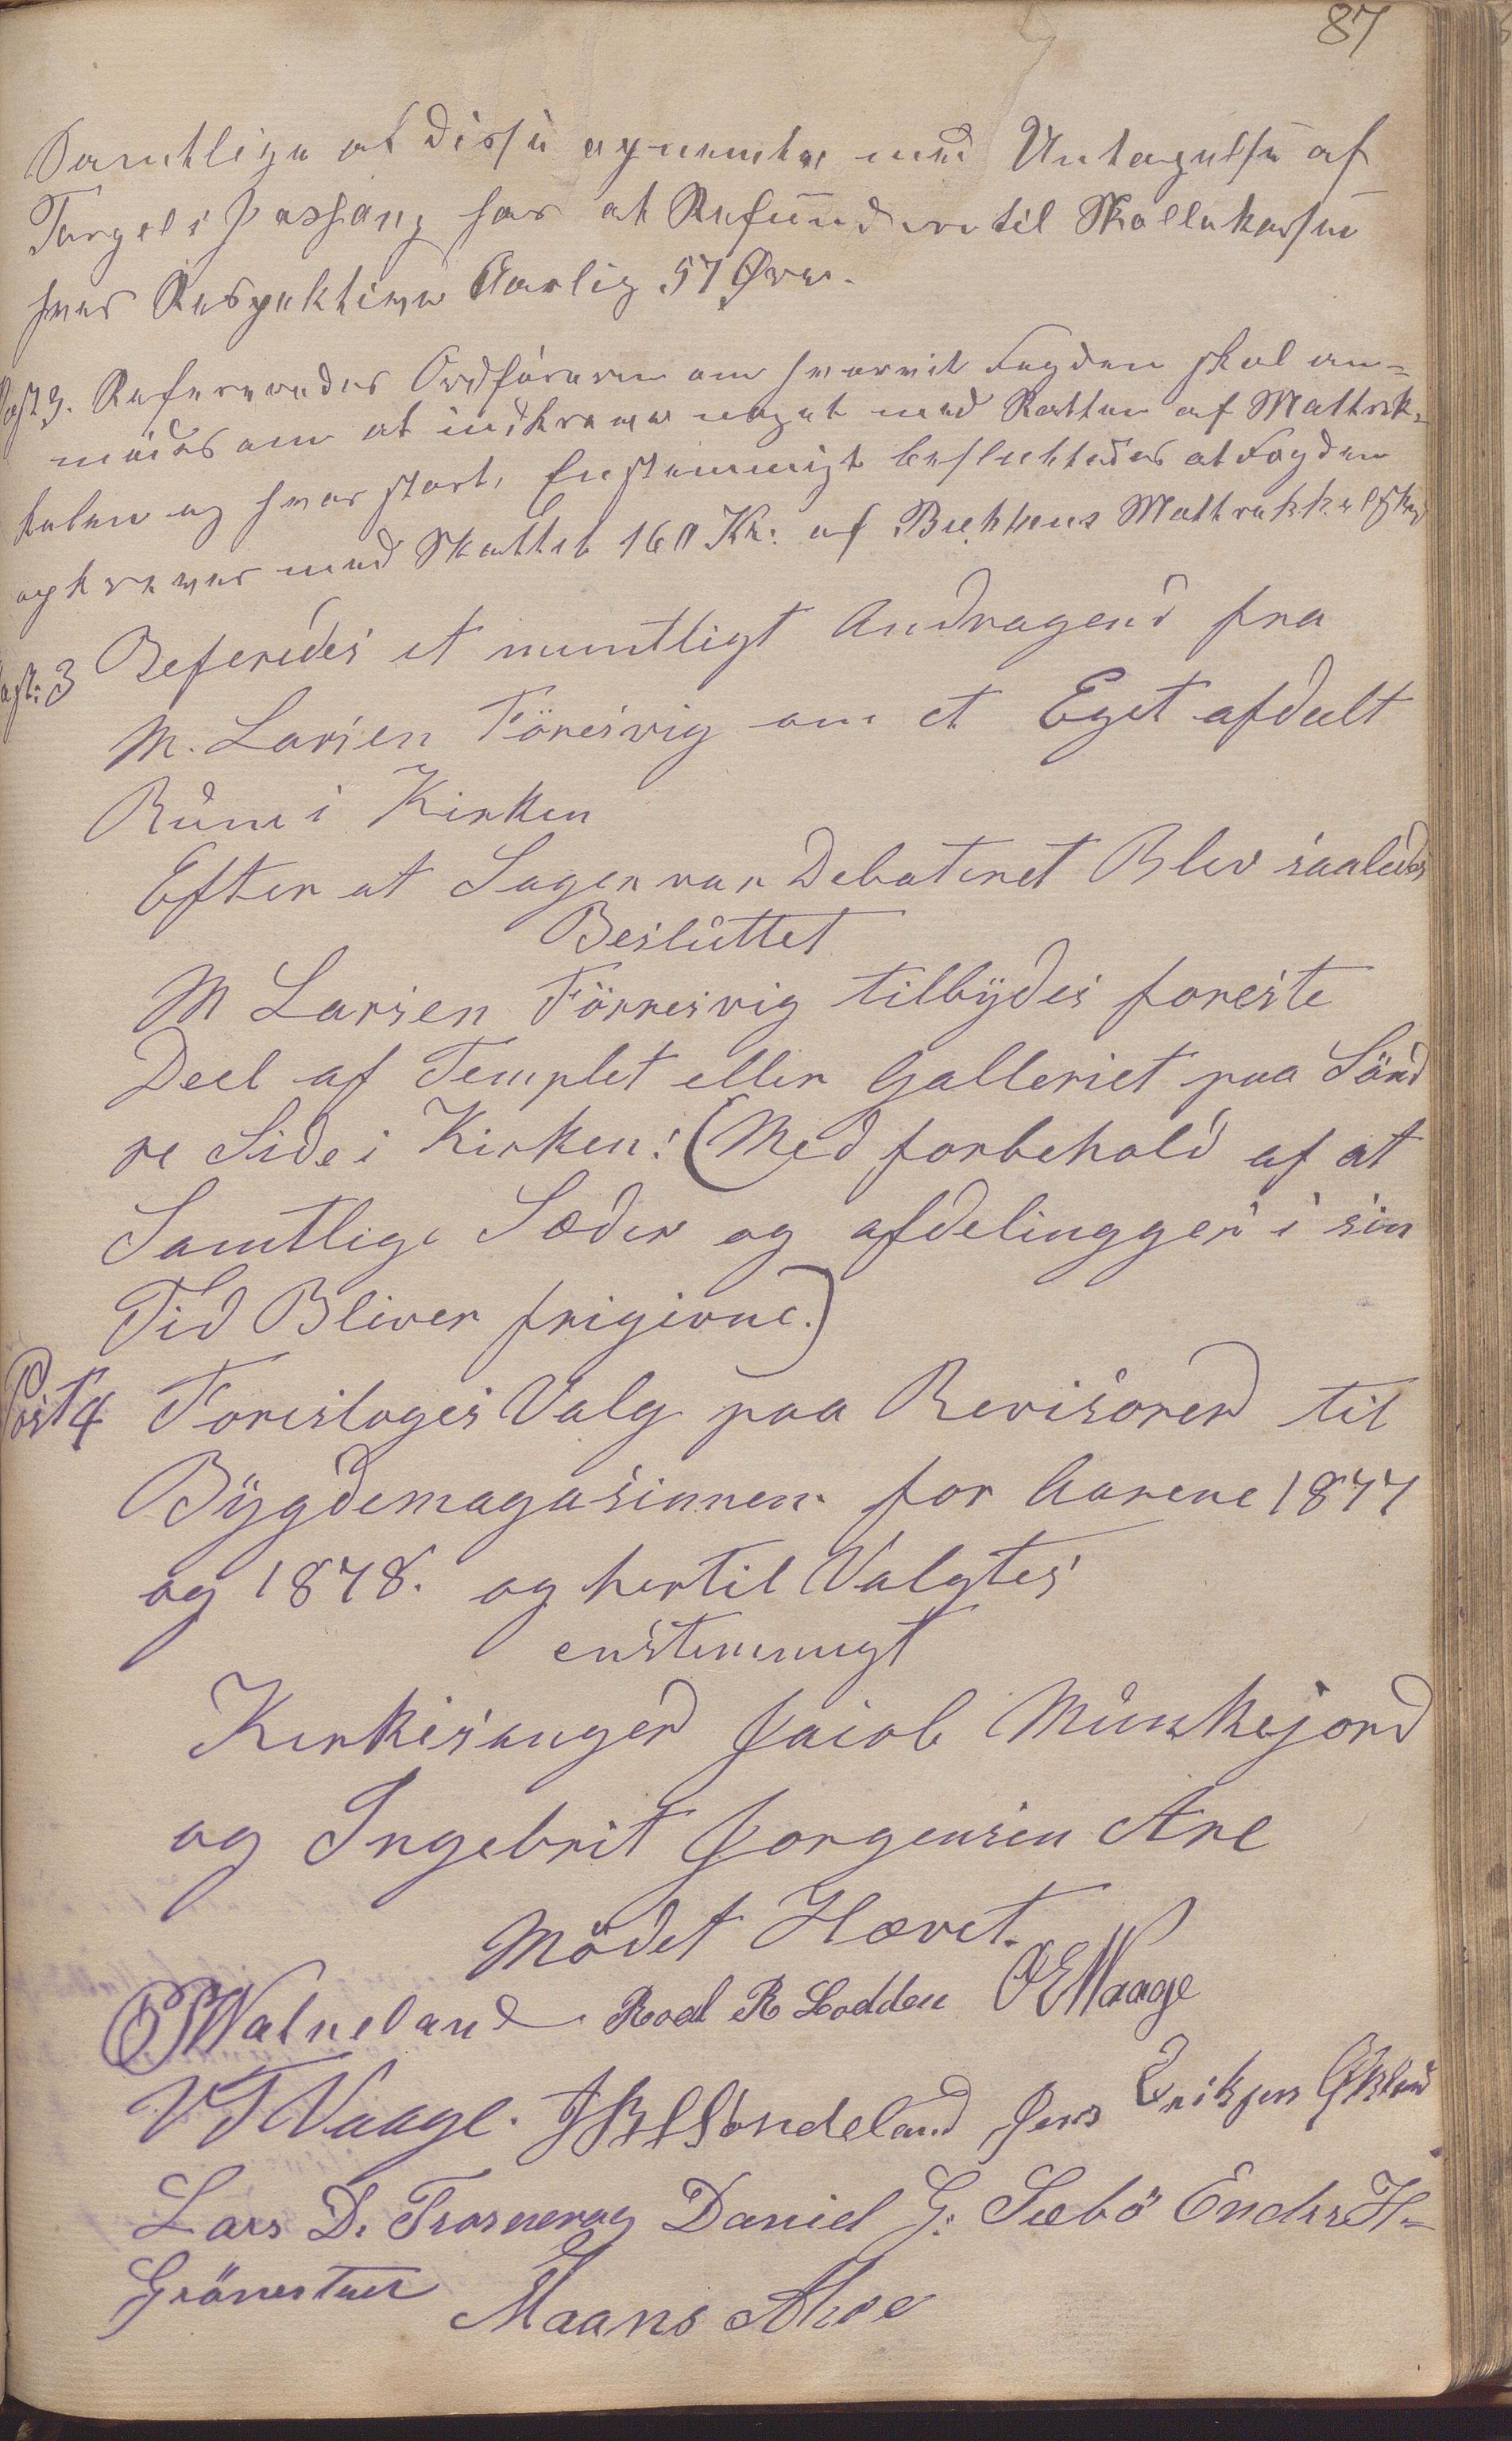 87
Samtlige af disse opnevnte med Untagelse af
Torgels har at Refundere til Skollekassen
hver Respektive Aarlig 57 Øre.
Post 3. Refereredes Ordføreren om hvorvit Fogden skal an=
modes om at indkreve noget med Skatten af Mattrik=
kelen og hvor stort, Enstemmigt besluttedes at Fogden
opkrever med Skattet 160 Kr. af Mattrikkelskyld
Post: 3 Referedes et muntligt Andragend fra
M. Larsen Föresvig om et Eget afdeelt
Rum i Kirken
Efter at Sagen var Debateret Blev saaledes
Besluttet
M Larsen Förresvig tilbydes foreste
Deel af Templet eller Galleriet paa Sönd
re Side i Kirken: (Med forbehold af at
Samtlige Sæder og afdelingger i sin
Tid Bliver frigivne.)
Post 4 Foresloges Valg paa Revisorer til
Bÿgdemagasinnen for Aarene 1877
og 1878. og hertil Valgtes
enstemmigt
Kirkesanger Jacob Munkejord
og Ingebrit Jorgensen Are
Mödet Hævet.
Watneland Roal R Lodden OE Waage
VT Vaage. Sondeland Jens Eriksen Økland
Lars D. Daniel G. Sæbö Endre H-
Grönnestad Maans